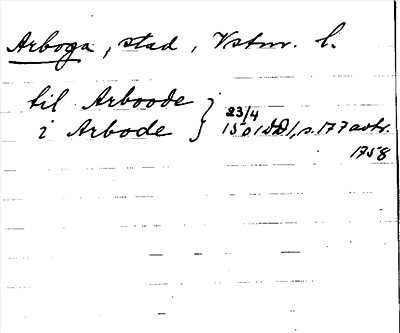 Arboga, stad, Vstm. l.
til Arboode
i Arbode } 23/4 1501 DD1, s. 177 avtr.
1758